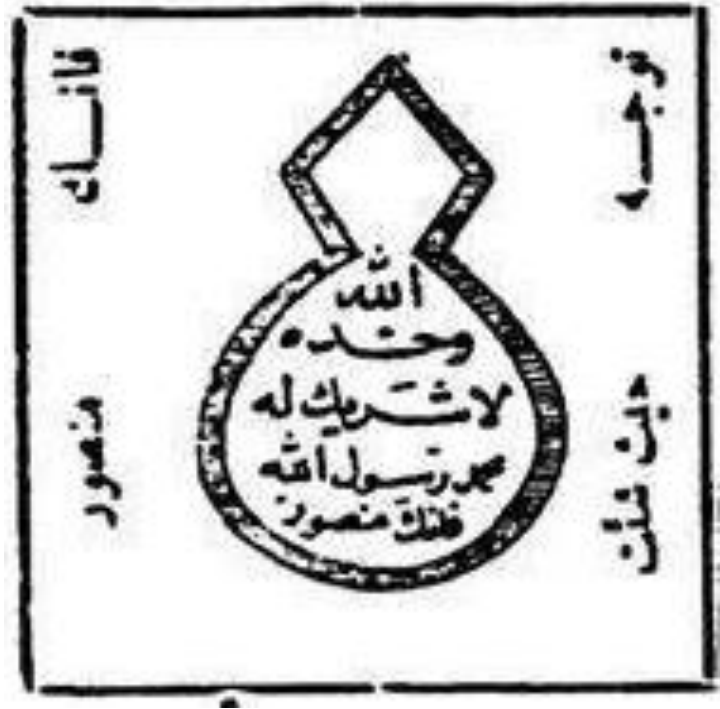 توجـــه
حيث شئت
فانـــك
منصور
الله
وحده
لا شريك له
محمد رسول الله
فإنك منصور